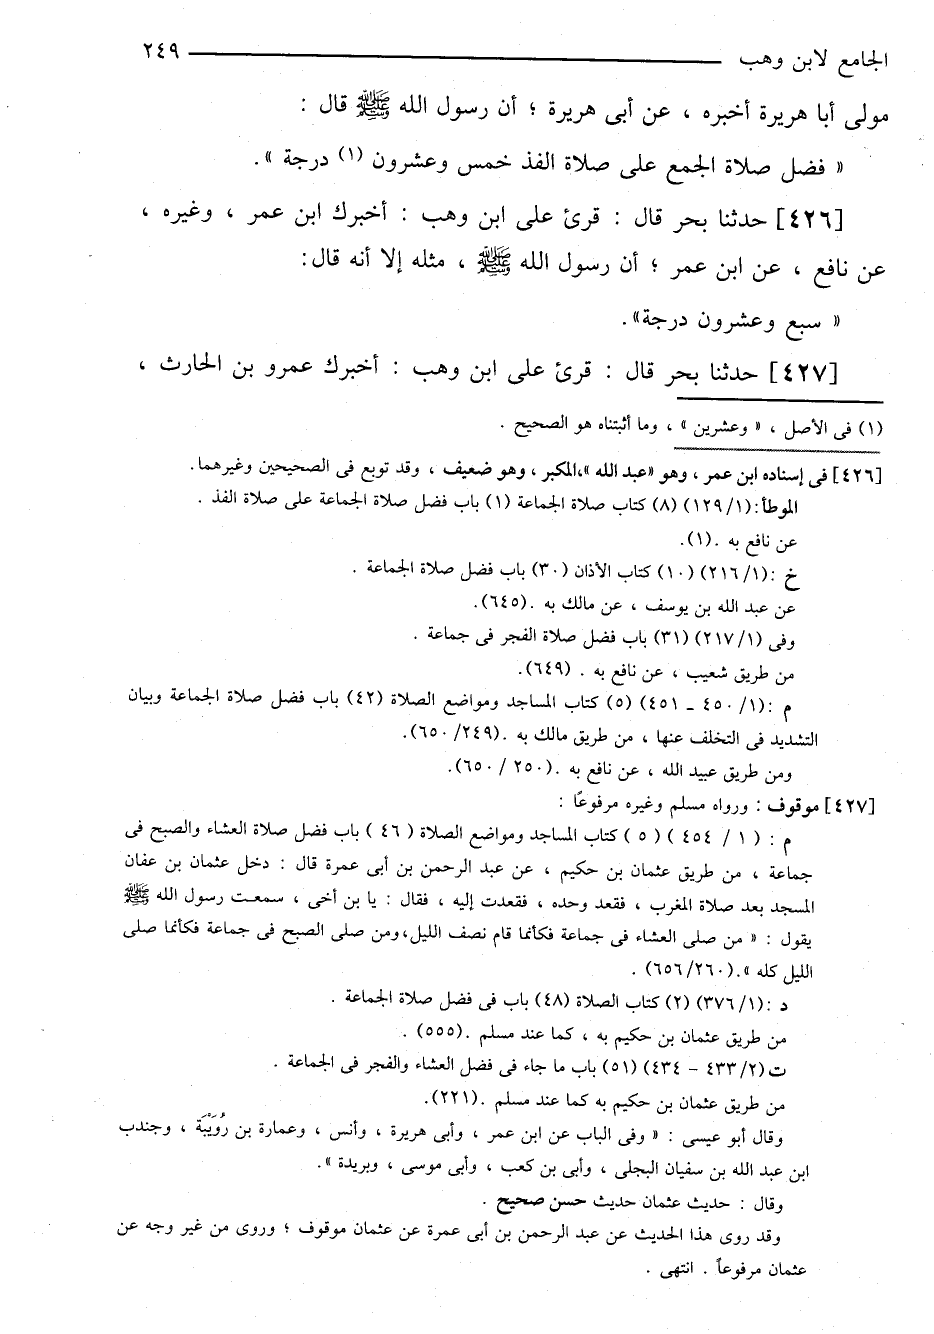 الجامع لابن وهب ٢٤٩
مولى أبا هريرة أخبره ، عن أبى هريرة ؛ أن رسول الله ﷺ قال :
« فضل صلاة الجمع على صلاة الفذ خمس وعشرون (١) درجة ».
[٤٢٦] حدثنا بحر قال : قرئ على ابن وهب : أخبرك ابن عمر ، وغيره ،
عن نافع ، عن ابن عمر ؛ أن رسول الله ﷺ ، مثله إلا أنه قال:
« سبع وعشرون درجة».
[٤٢٧] حدثنا بحر قال : قرئ على ابن وهب : أخبرك عمرو بن الحارث ،
(١) فى الأصل ، « وعشرين » ، وما أثبتناه هو الصحيح .
[٤٢٦] فى إسناده ابن عمر ، وهو «عبد الله»،المكبر ، وهو ضعيف ، وقد توبع فى الصحيحين وغيرهما.
الموطأ:(١٢٩/١) (٨) كتاب صلاة الجماعة (١) باب فضل صلاة الجماعة على صلاة الفذ .
عن نافع به .(١).
خ :(٢١٦/١) (١٠) كتاب الأذان (٣٠) باب فضل صلاة الجماعة .
عن عبد الله بن يوسف ، عن مالك به .(٦٤٥).
وفى (٢١٧/١) (٣١) باب فضل صلاة الفجر فى جماعة .
من طريق شعيب ، عن نافع به . (٦٤٩).
م :(١/ ٤٥٠ ـ ٤٥١) (٥) كتاب المساجد ومواضع الصلاة (٤٢) باب فضل صلاة الجماعة وبيان
التشديد فى التخلف عنها ، من طريق مالك به .(٦٥٠/٢٤٩).
ومن طريق عبيد الله ، عن نافع به .(٢٥٠ / ٦٥٠).
[٤٢٧] موقوف : ورواه مسلم وغيره مرفوعًا :
م : ( ١ / ٤٥٤ ) ( ٥ ) كتاب المساجد ومواضع الصلاة ( ٤٦ ) باب فضل صلاة العشاء والصبح فى
جماعة ، من طريق عثمان بن حكيم ، عن عبد الرحمن بن أبى عمرة قال : دخل عثمان بن عفان
المسجد بعد صلاة المغرب ، فقعد وحده ، فقعدت إليه ، فقال : يا بن أخى ، سمعت رسول الله ﷺ
يقول : « من صلى العشاء فى جماعة فكأنما قام نصف الليل،ومن صلى الصبح فى جماعة فكأنما صلى
الليل كله ».(٦٥٦/٢٦٠) .
د :(٣٧٦/١) (٢) كتاب الصلاة (٤٨) باب فى فضل صلاة الجماعة .
من طريق عثمان بن حكيم به ، كما عند مسلم .(٥٥٥) .
ت(٢/ ٤٣٣ - ٤٣٤) (٥١) باب ما جاء فى فضل العشاء والفجر فى الجماعة .
من طريق عثمان بن حكيم به كما عند مسلم .(٢٢١).
وقال أبو عيسى : « وفى الباب عن ابن عمر ، وأبى هريرة ، وأنس ، وعمارة بن رُوَيْبَة ، وجندب
ابن عبد الله بن سفيان البجلى ، وأبى بن كعب ، وأبى موسى ، وبريدة ».
وقال : حديث عثمان حديث حسن صحيح .
وقد روى هذا الحديث عن عبد الرحمن بن أبى عمرة عن عثمان موقوف ؛ وروى من غير وجه عن
عثمان مرفوعاً . انتهى .